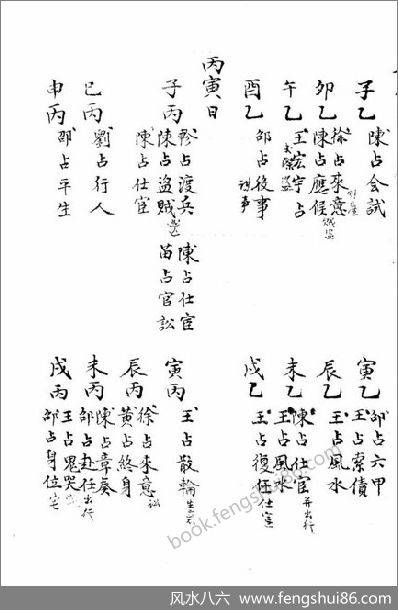 子乙 陳占会試
徐占來意
卯乙 陳占應候
午乙 王宏宇占
酉乙 邵占後事
丙寅日
占渡兵 陳占仕宦
子丙 陳占盗賊 苗占官訟
陳占仕宦
巳丙 劉占行人
申丙 邵占平生
寅乙 邵占六甲
王占索債
辰乙 王占風水
陳占仕宦 并出行
未乙 王占風水
戌乙 王占復任仕宦
寅丙 王占散輪
徐占來意 訟
辰丙 黄占終身
陳占章奏
未丙 邵占赴任 出行
王占鬼哭
戌丙 邵占身位 宅
book.fengshui86.com
风水八六 - www.fengshui86.com